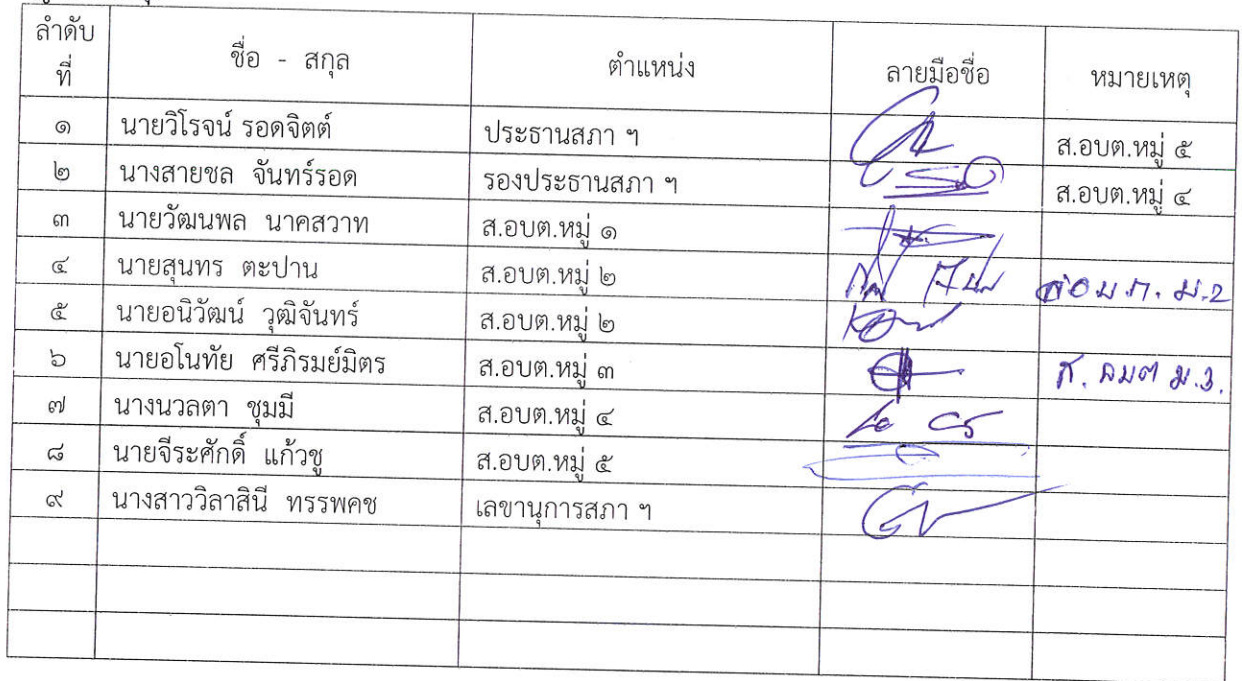 ลำดับ
ที่ ชื่อ - สกุล ตำแหน่ง ลายมือชื่อ หมายเหตุ
๑ นายวิโรจน์ รอดจิตต์ ประธานสภา ฯ ส.อบต.หมู่ ๕
๒ นางสายชล จันทร์รอด รองประธานสภา ฯ ส.อบต.หมู่ ๔
๓ นายวัฒนพล นาคสวาท ส.อบต.หมู่ ๑
๔ นายสุนทร ตะปาน ส.อบต.หมู่ ๒
๕ นายอนิวัฒน์ วุฒิจันทร์ ส.อบต.หมู่ ๒
๖ นายอโนทัย ศรีภิรมย์มิตร ส.อบต.หมู่ ๓
๗ นางนวลตา ชุมมี ส.อบต.หมู่ ๔
๘ นายจีระศักดิ์ แก้วชู ส.อบต.หมู่ ๕
๙ นางสาววิลาสินี ทรรพคช เลขานุการสภา ฯ